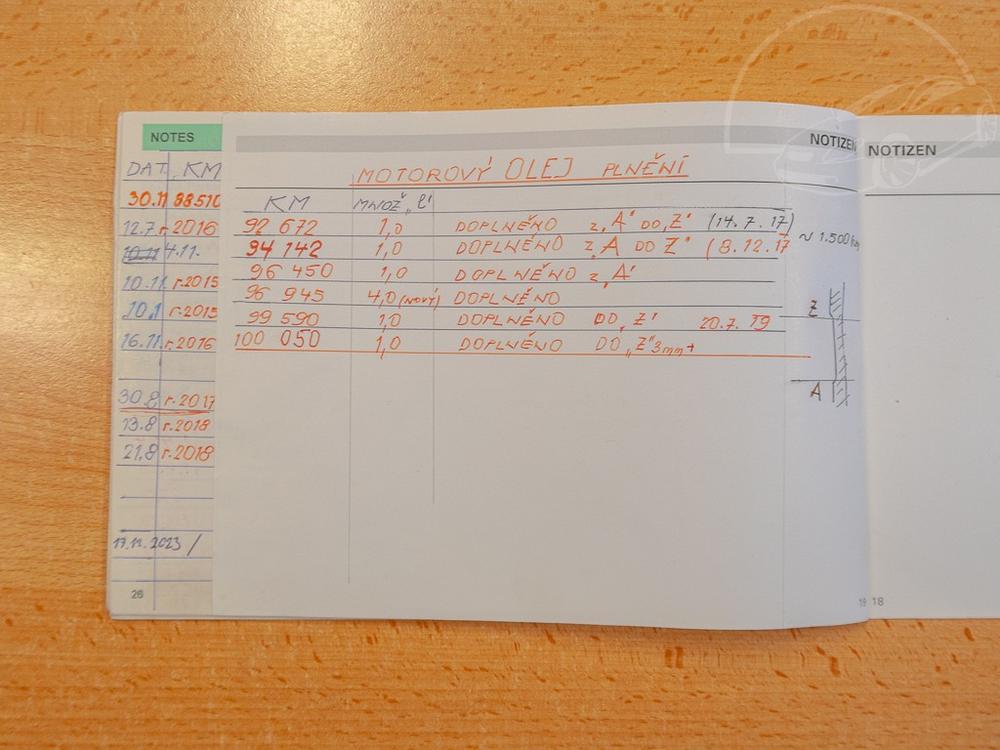 NOTES
DAT. KM
30.11 88510
12.7. r.2016
10.11 4.11.
10.11. r.2015
10.1 r.2015
16.11. r.2016
30.8. r.2017
13.8 r.2018
21.8 r.2018
17.11.2023 /
26
NOTIZEN
MOTOROVÝ OLEJ PLNĚNÍ
KM MNOŽ. „l"
92 672 1,0 DOPLNĚNO z „A" DO „Z" (14.7.17)
94 142 1,0 DOPLNĚNO z „A DO Z" (8.12.17
~ 1.500
96 450 1,0 DOPLNĚNO z „A"
96 945 4,0 (NOVÝ) DOPLNĚNO
99 590 1,0 DOPLNĚNO DO „Z" 20.7. 19
100 050 1,0 DOPLNĚNO DO „Z" 3mm+
Z
A
19
NOTIZEN
18